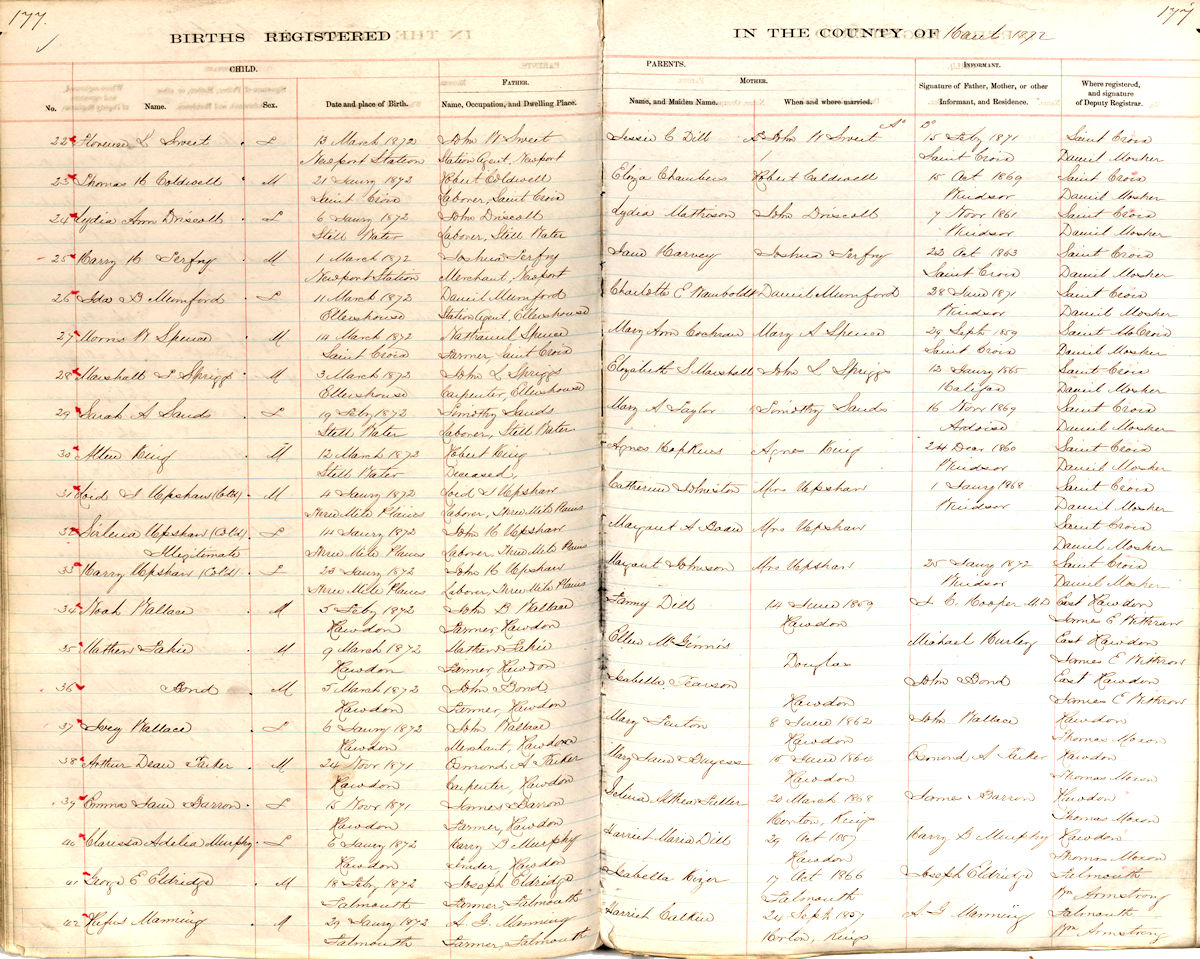 177.
177
BIRTHS REGISTERED
IN THE COUNTY OF Hants 1872
CHILD.
PARENTS.
INFORMANT.
No. Name. Sex. Date and place of Birth.
FATHER.
Name, Occupation, and Dwelling Place.
MOTHER.
Name, and Maiden Name. When and where married.
Signature of Father, Mother, or other Informant, and Residence.
Where registered, and signature of Deputy Registrar.
22 Florence L Sweet F 13 March 1872 John W Sweet Jessie C Dill John W Sweet 15 Feby 1871 Saint Croix
Newport Station Station Agent, Newport Saint Croix Daniel Mosher
23 Thomas H Coldwell M 21 Jany 1872 Robert Coldwell Eliza Chambers Robert Caldwell 15 Oct 1869 Saint Croix
Saint Croix Laborer, Saint Croix Windsor Daniel Mosher
24 Lydia Ann Driscoll F 6 Jany 1872 John Driscoll Lydia Mathison John Driscoll 7 Novr 1861 Saint Croix
Still Water Laborer, Still Water Windsor Daniel Mosher
25 Harry H M 1 March 1872 Joshua Jane Harvey Joshua 22 Oct 1863 Saint Croix
Newport Station Merchant, Newport Saint Croix Daniel Mosher
26 Ida B Mumford F 11 March 1872 Daniel Mumford Charlotte E Wamboldt Daniel Mumford 28 June 1871 Saint Croix
Ellershouse Station Agent, Ellershouse Windsor Daniel Mosher
27 Morris W Spence M 14 March 1872 Nathaniel Spence Mary Ann Cochran Mary A Spence 29 Septr 1859 Saint Croix
Saint Croix Farmer Saint Croix Saint Croix Daniel Mosher
28 Marshall S Spriggs M 3 March 1872 John L Spriggs Elizabeth S Marshall John L Spriggs 12 Jany 1865 Saint Croix
Ellershouse Carpenter, Ellershouse Halifax Daniel Mosher
29 Sarah A Sands F 19 Feby 1872 Timothy Sands Mary A Taylor Timothy Sands 16 Novr 1869 Saint Croix
Still Water Laborer, Still Water Ardoise Daniel Mosher
30 King M 12 March 1872 Robert King Agnes Hopkins Agnes King 24 1860 Saint Croix
Still Water Deceased, Windsor Daniel Mosher
31 Upshaw (Cold) M 4 Jany 1872 Upshaw Catherine Johnston Mrs Upshaw 1 Jany 1868 Saint Croix
Three Mile Plains Laborer, Three Mile Plains Windsor Daniel Mosher
32 Upshaw (Cold) F 14 Jany 1872 John H Upshaw Margaret A Mrs Upshaw Saint Croix
Illegitimate Three Mile Plains Laborer, Three Mile Plains Daniel Mosher
33 Harry Upshaw (Cold) F 23 Jany 1872 John H Upshaw Margaret Johnson Mrs Upshaw 25 Jany 1872 Saint Croix
Three Mile Plains Laborer, Three Mile Plains Windsor Daniel Mosher
34 Noah Wallace M 5 Feby 1872 John B Wallace Fanny Dill 14 June 1859 J C Hooper M.D East Rawdon
Rawdon Farmer, Rawdon Rawdon James E Withrow
35 Mathew M 9 March 1872 Mathew Ellen McGinnis Michael Hurley East Rawdon
Rawdon Farmer, Rawdon Douglas James E Withrow
36 Bond M 5 March 1872 John Bond Isabella Pearson John Bond East Rawdon
Rawdon Farmer, Rawdon Rawdon James E Withrow
37 Ivey Wallace F 6 Jany 1872 John Wallace Mary Fenton 8 June 1862 John Wallace Rawdon
Rawdon Merchant, Rawdon Rawdon Thomas Moxon
38 Arthur Dean Parker M 24 Novr 1871 Osmond A Parker Mary Jane 15 June 1864 Osmond A Parker Rawdon
Rawdon Carpenter, Rawdon Rawdon Thomas Moxon
39 Emma Jane Barron F 15 Novr 1871 James Barron 20 March 1868 James Barron Rawdon
Rawdon Farmer, Rawdon Horton, Kings Thomas Moxon
40 Clarissa Adelia Murphy F 6 Jany 1872 Harry B Murphy Harriet Maria Dill 29 Oct 1857 Harry B Murphy Rawdon
Rawdon Rawdon Rawdon Thomas Moxon
41 George E Eldridge M 18 Feby 1872 Joseph Eldridge Isabella 17 Oct 1866 Joseph Eldridge Falmouth
Falmouth Farmer, Falmouth Falmouth Wm Armstrong
42 Rufus Manning M 29 Jany 1872 A. G. Manning Harriet Calkin 24 Septr 1857 A G Manning Falmouth
Falmouth Farmer, Falmouth Horton, Kings Wm Armstrong